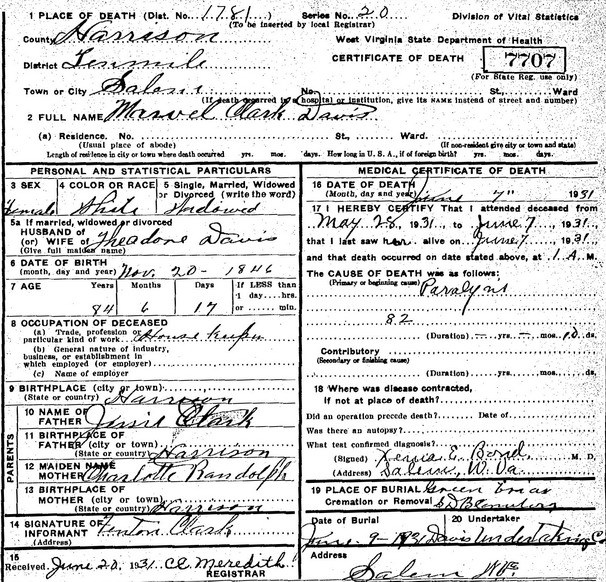 1 PLACE OF DEATH (Dist. No. 1781) Series No. 20 Division of Vital Statistics
(To be inserted by local Registrar)
County Harrison West Virginia State Department of Health
District Tenmile CERTIFICATE OF DEATH 7707
(For State Reg. use only)
Town or City Salem No. St., Ward
(If death occurred in a hospital or institution, give its NAME instead of street and number)
2 FULL NAME Clark Davis
(a) Residence. No. St., Ward.
(Usual place of abode) (If non-resident give city or town and state)
Length of residence in city or town where death occurred yrs. mos. days. How long in U. S. A., if of foreign birth? yrs. mos. days.
PERSONAL AND STATISTICAL PARTICULARS
3 SEX 4 COLOR OR RACE 5 Single, Married, Widowed
or Divorced (write the word)
Female White Widowed
5a If married, widowed or divorced
HUSBAND OF
(or) WIFE OF Theadore Davis
(Give full maiden name)
6 DATE OF BIRTH
(month, day and year) Nov. 20 - 1846
7 AGE Years Months Days If LESS than
1 day....hrs.
or ...... min.
84 6 17
8 OCCUPATION OF DECEASED
(a) Trade, profession or
particular kind of work House keeper
(b) General nature of industry,
business, or establishment in
which employed (or employer)
(c) Name of employer
9 BIRTHPLACE (city or town)
(State or country) Harrison
PARENTS
10 NAME OF
FATHER Jessie Clark
11 BIRTHPLACE OF
FATHER (city or town)
(State or country) Harrison
12 MAIDEN NAME
MOTHER Charlotte Randolph
13 BIRTHPLACE OF
MOTHER (city or town)
(State or country) Harrison
14 SIGNATURE OF
INFORMANT Fenton Clark
(Address)
15
Received June 20, 1931. CC Meredith
REGISTRAR
MEDICAL CERTIFICATE OF DEATH
16 DATE OF DEATH
(Month, day and year) June 7" 1931
17 I HEREBY CERTIFY That I attended deceased from
May 28, 1931 to June 7, 1931
that I last saw her alive on June 7, 1931
and that death occurred on date stated above, at 1 A. M.
The CAUSE OF DEATH was as follows:
(Primary or beginning cause)
Paralysis
82
(Duration) — yrs. — mos. 10 ds.
Contributory
(Secondary or finishing cause)
(Duration) yrs. mos. ds.
18 Where was disease contracted,
If not at place of death?
Did an operation precede death? Date of
Was there an autopsy?
What test confirmed diagnosis?
(Signed) Xenia E. Bond, M. D.
(Address) Salem, W. Va.
19 PLACE OF BURIAL Green Briar
Cremation or Removal S D B Cemetery
Date of Burial 20 Undertaker
June 9-1931 Davis Undertaking Co
Address
Salem W Va